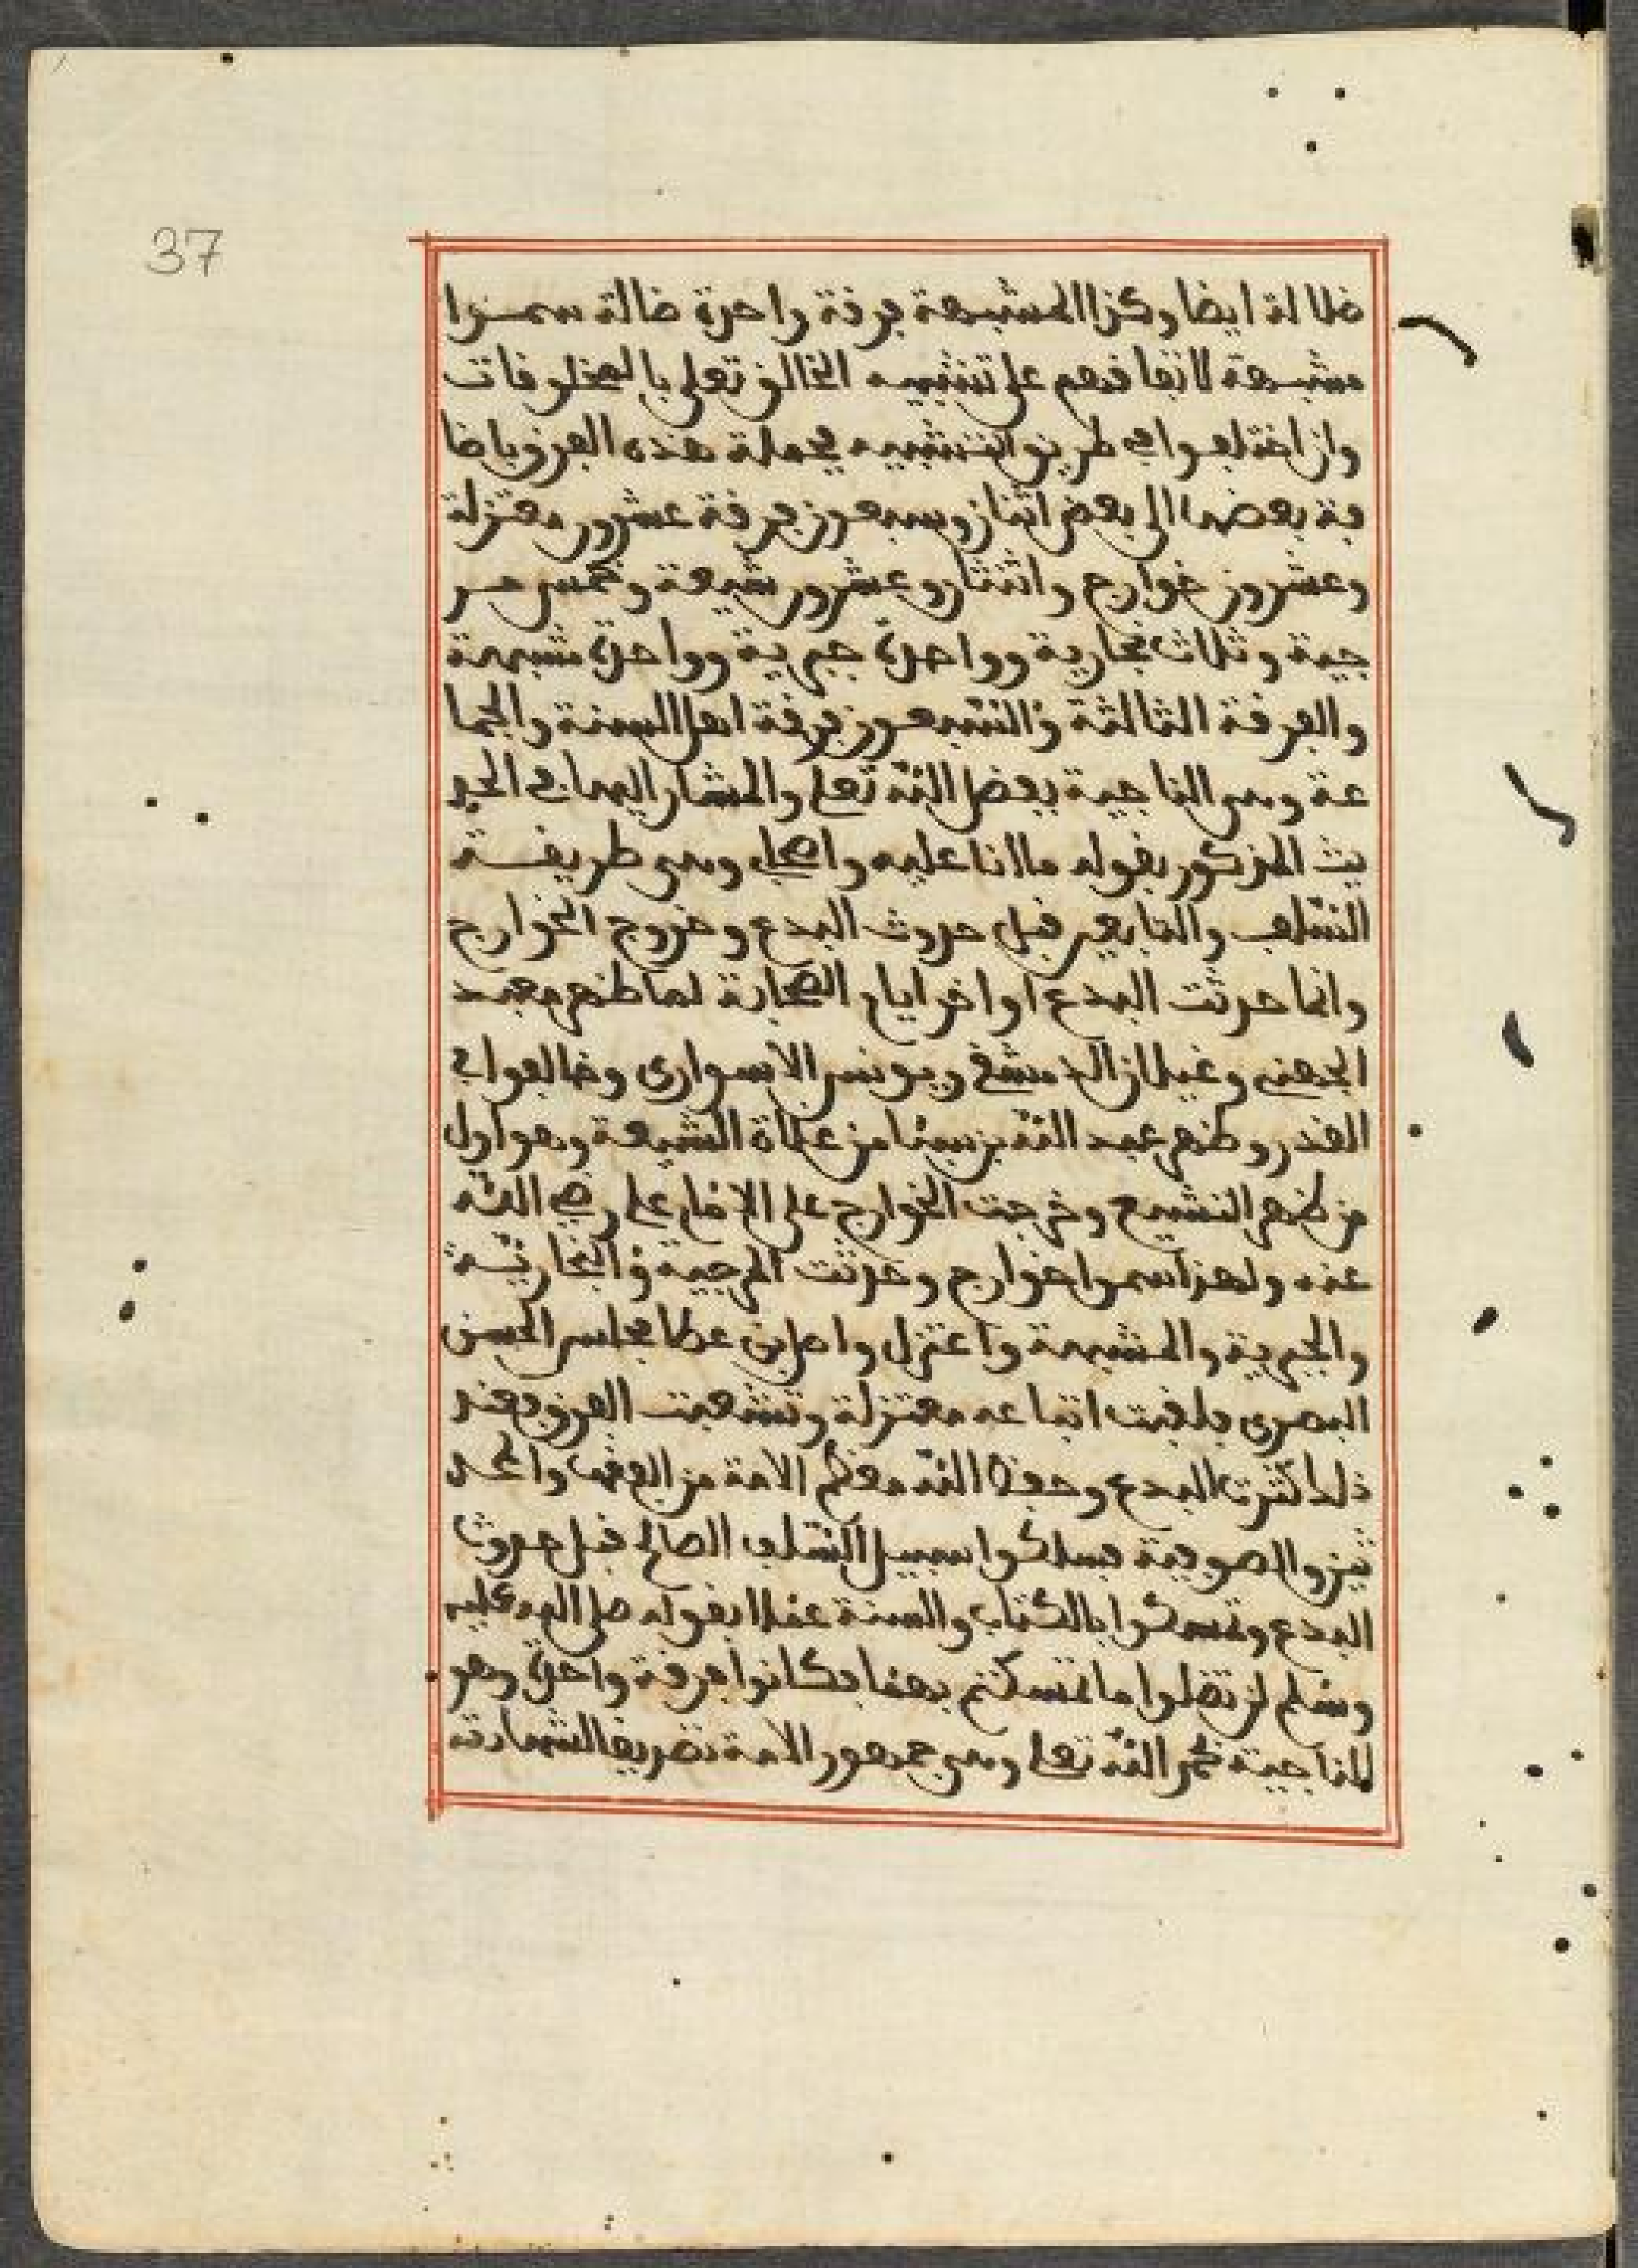 37
ضلالة ايضا وكذا المشبهة فرقة واحدة ضالة سموا
مشبهة لاتفاقهم على تشبيه الخالق تعلى بالمخلوقات
وان اختلفوا في طريق التشبيه فجملة هذه الفرق باضا
فة بعضها الى بعض اثنان وسبعون فرقة عشرون معتزلة
وعشرون خوارج واثنتان وعشرون شيعة وخمس مر
جية وثلاث نجارية وواحدة جبرية وواحدة مشبهة
والفرقة الثالثة والسبعون فرقة اهل السنة والجما
عة وهي الناجية بفضل الله تعلى والمشار اليها في الحد
يث المذكور بقوله ما انا عليه واصحابي وهي طريقة
السلف والتابعين قبل حدوث البدع وخروج الخوارج
وانما حدثت البدع اواخر ايام الصحابة لما ظهر معبد
الجهني وغيلان الدمشقي ويونس الاسواري وخالفوا في
القدر وظهر عبد الله بن سبئا من غلاة الشيعة وهو اول
من اظهر التشيع وخرجت الخوارج على الامام علي رضي الله
عنه ولهذا سموا خوارج وحدثت المرجية والنجارية
والجبرية والمشبهة واعتزل واصل بن عطا مجلس الحسن
البصري فلقبت اتباعه معتزلة وتشعبت الفرق فعند
ذلك كثرت البدع وحفظ الله معظم الامة من الفقهاء والمحد
ثين والصوفية فسلكوا سبيل السلف الصالح قبل حدوث
البدع وتمسكوا بالكتاب والسنة عملا بقوله صلى الله عليه
وسلم لن تضلوا ما تمسكتم بهما فكانوا فرقة واحدة وهو
الناجية بحمد الله تعلى وهي جمهور الامة تصديقا لشهادته